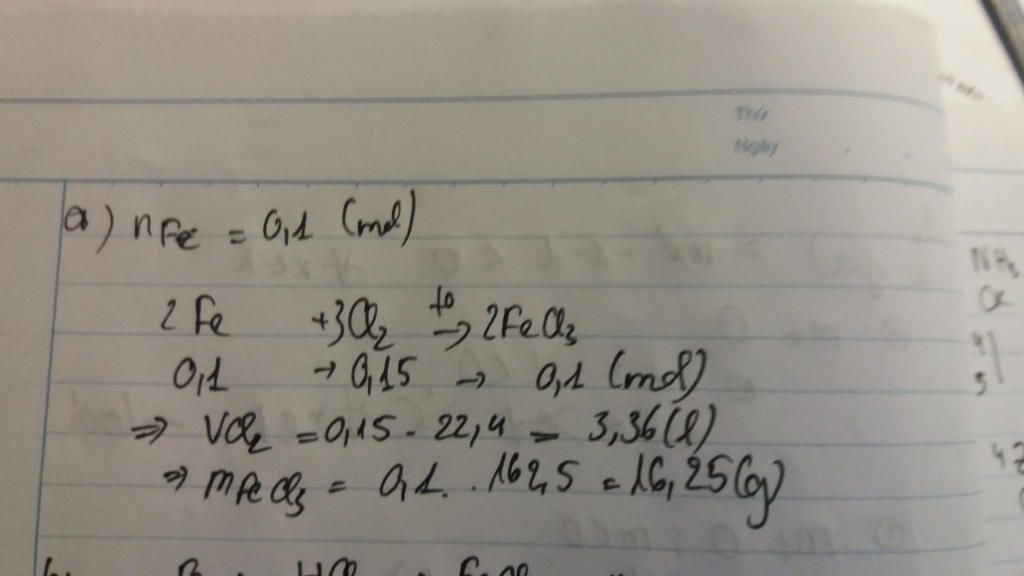 Thứ
Ngày
a) nFe = 0,1 (mol)
2Fe +3Cl₂ t0→ 2FeCl₃
0,1 → 0,15 → 0,1 (mol)
⇒ VCl₂ = 0,15 . 22,4 = 3,36(l)
⇒ mFeCl₃ = 0,1 . 162,5 = 16,25(g)
NH₃